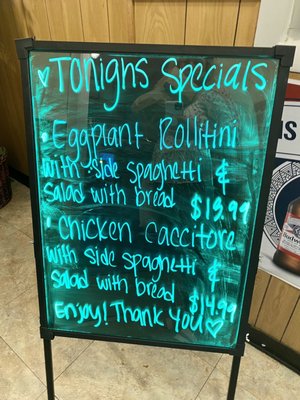 ♡ Tonighs Specials
· Eggplant Rollitini
with side spaghetti &
salad with bread $13.99
· Chicken Caccitore
with side spaghetti &
salad with bread $14.99
Enjoy! Thank You ♡